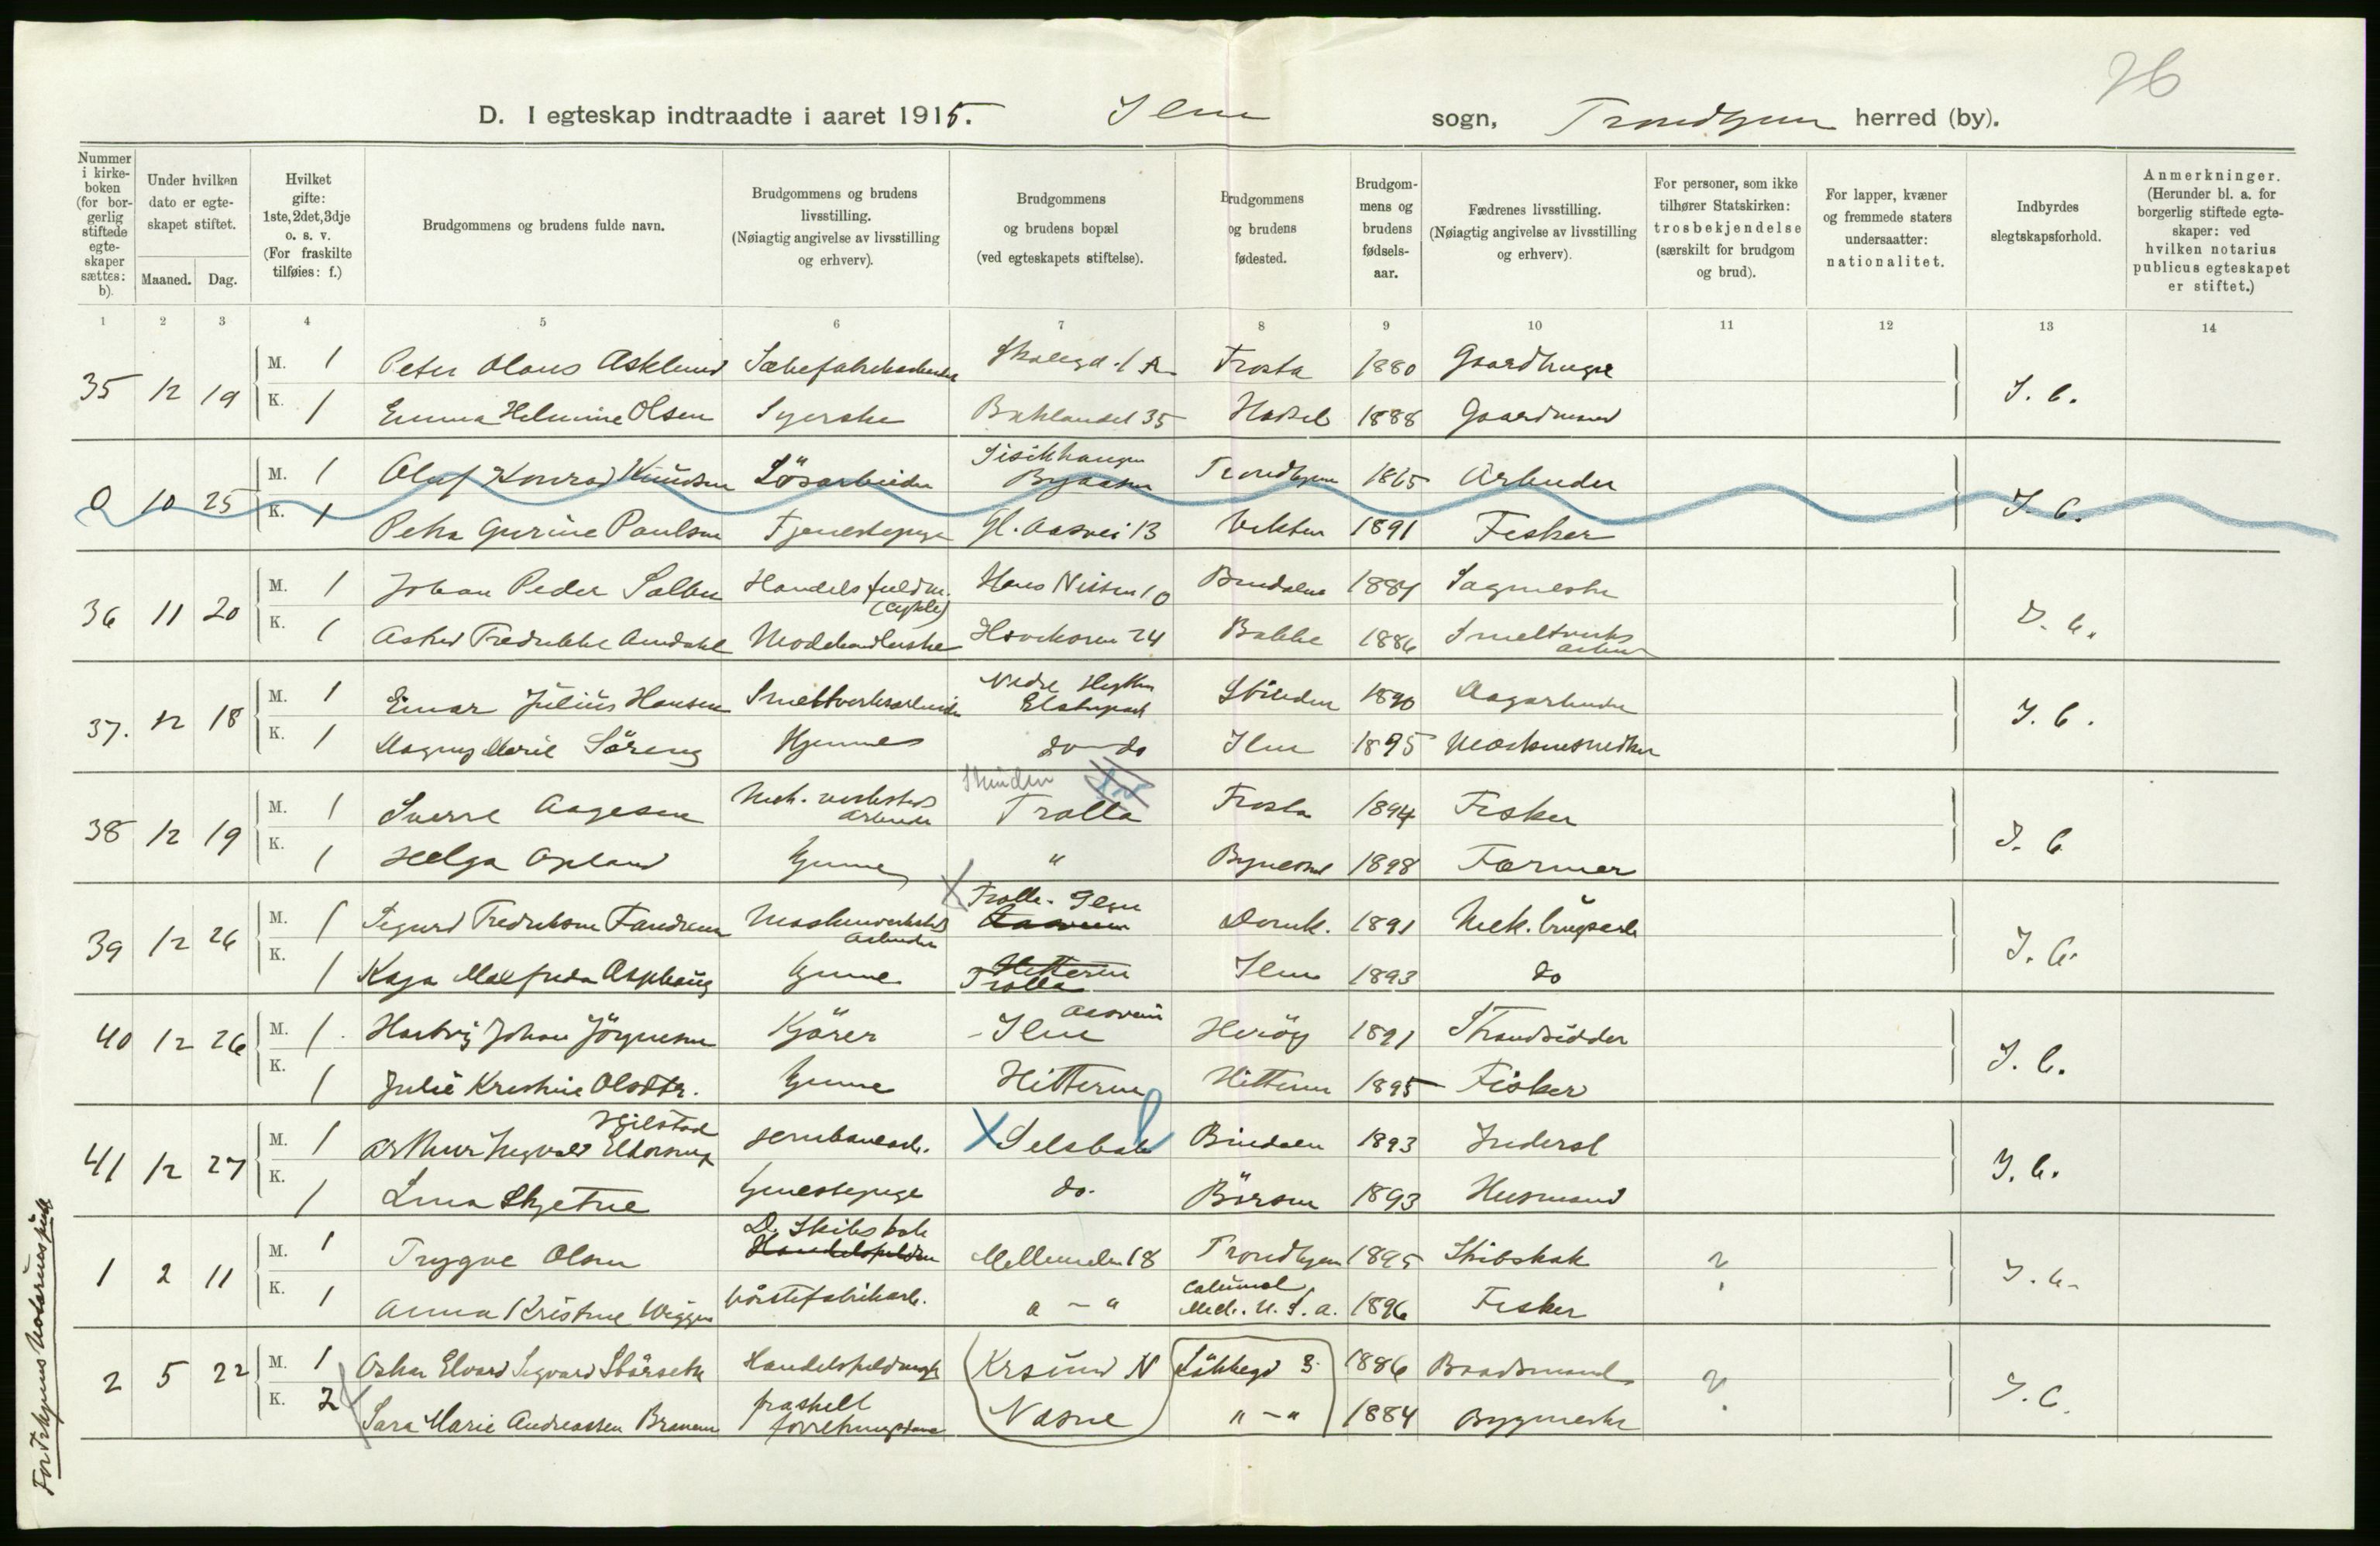 26
D. I egteskap indtraadte i aaret 1915. Ilen sogn, Trondhjem herred (by).
Nummer i kirkeboken (for borgerlig stiftede egteskaper sættes: b).
Under hvilken dato er egteskapet stiftet.
Maaned. Dag.
Hvilket gifte: 1ste, 2det, 3dje o. s. v. (For fraskilte tilføies: f.)
Brudgommens og brudens fulde navn.
Brudgommens og brudens livsstilling. (Nøiagtig angivelse av livsstilling og erhverv).
Brudgommens og brudens bopæl (ved egteskapets stiftelse).
Brudgommens og brudens fødested.
Brudgommens og brudens fødselsaar.
Fædrenes livsstilling. (Nøiagtig angivelse av livsstilling og erhverv).
For personer, som ikke tilhører Statskirken: trosbekjendelse (særskilt for brudgom og brud).
For lapper, kvæner og fremmede staters undersaatter: nationalitet.
Indbyrdes slegtskapsforhold.
Anmerkninger. (Herunder bl. a. for borgerlig stiftede egteskaper: ved hvilken notarius publicus egteskapet er stiftet.)
1 2 3 4 5 6 7 8 9 10 11 12 13 14
35 12 19 M. 1 Peter Olaus Asklund Sæbefabrikarbeider Skolegd. 1 A Frosta 1880 Gaardbruger I. b.
K. 1 Emma Helmine Olsen Syerske Baklandet 35 Hadsel 1888 Gaardmand
0 10 25 M. 1 Olaf Konrad Knudsen Løsarbeider Sisikhaugen Byaasen Trondhjem 1865 Arbeider I. b.
K. 1 Petra Gurine Paulsen Tjenestepige Gl. Aasvei 13 Vikten 1891 Fisker
36 11 20 M. 1 Johan Peder Solbu Handelsfuldm. (cykle) Hans Nissen 10 Bindalen 1884 Sagmester I. b.
K. 1 Astrid Fredrikke Amdahl Modehandlerske Havekoren 24 Bakke 1886 Smeltverks arbeider
37. 12 18 M. 1 Einar Julius Hansen Smeltverksarbeider Nedre Hytten Ilen 1890 Dagarbeider I. b.
K. 1 Magny Marie Søreng Hjemme do do Ilen 1895 Maskinsnedker
38 12 19 M. 1 Sverre Aagesen Mek. verksteds arbeider Trolla Frosta 1894 Fisker I. b
K. 1 Helga Opland hjemme " Bynesset 1898 Farmer
39 12 26 M. 1 Sigurd Fredriksen Maskinverksteds arbeider Trolla - Ilen 1891 Mek. I. b.
K. 1 Kaja Alfreda Asphaug hjemme Trolla Ilen 1893 do
40 12 26 M. 1 Hartvig Johan Jørgensen Kjører Ilen Aasveien Herøy 1891 Strandsidder I. b.
K. 1 Julie Kristine Olsdtr. hjemme Hitteren Hitteren 1895 Fisker
41 12 27 M. 1 Arthur Ingvald Hjelstad Jernbanearb. Selsbak Bindalen 1893 Inderst I. b.
K. 1 Lina Skjetne tjenestepige do. Børsen 1893 Husmand
1 2 11 M. 1 Trygve Olsen Handelsfuldm Mellemila 18 Trondhjem 1895 Skibskok ? I. b.
K. 1 Anna Kristine Wiggen børstefabrikarb. " - " Calumet Mich. U. S. A. 1896 Fisker
2 5 22 M. 1 Oskar Edvard Sigvard Størseth Handelsfuldmægt Krsund N 3 1886 Baadsmand ? I. b.
K. 2 Sara Marie Andreassen fraskilt forretningsdame Nesne " - " 1884 Bygmester
For Trhjems Notariuspubl.